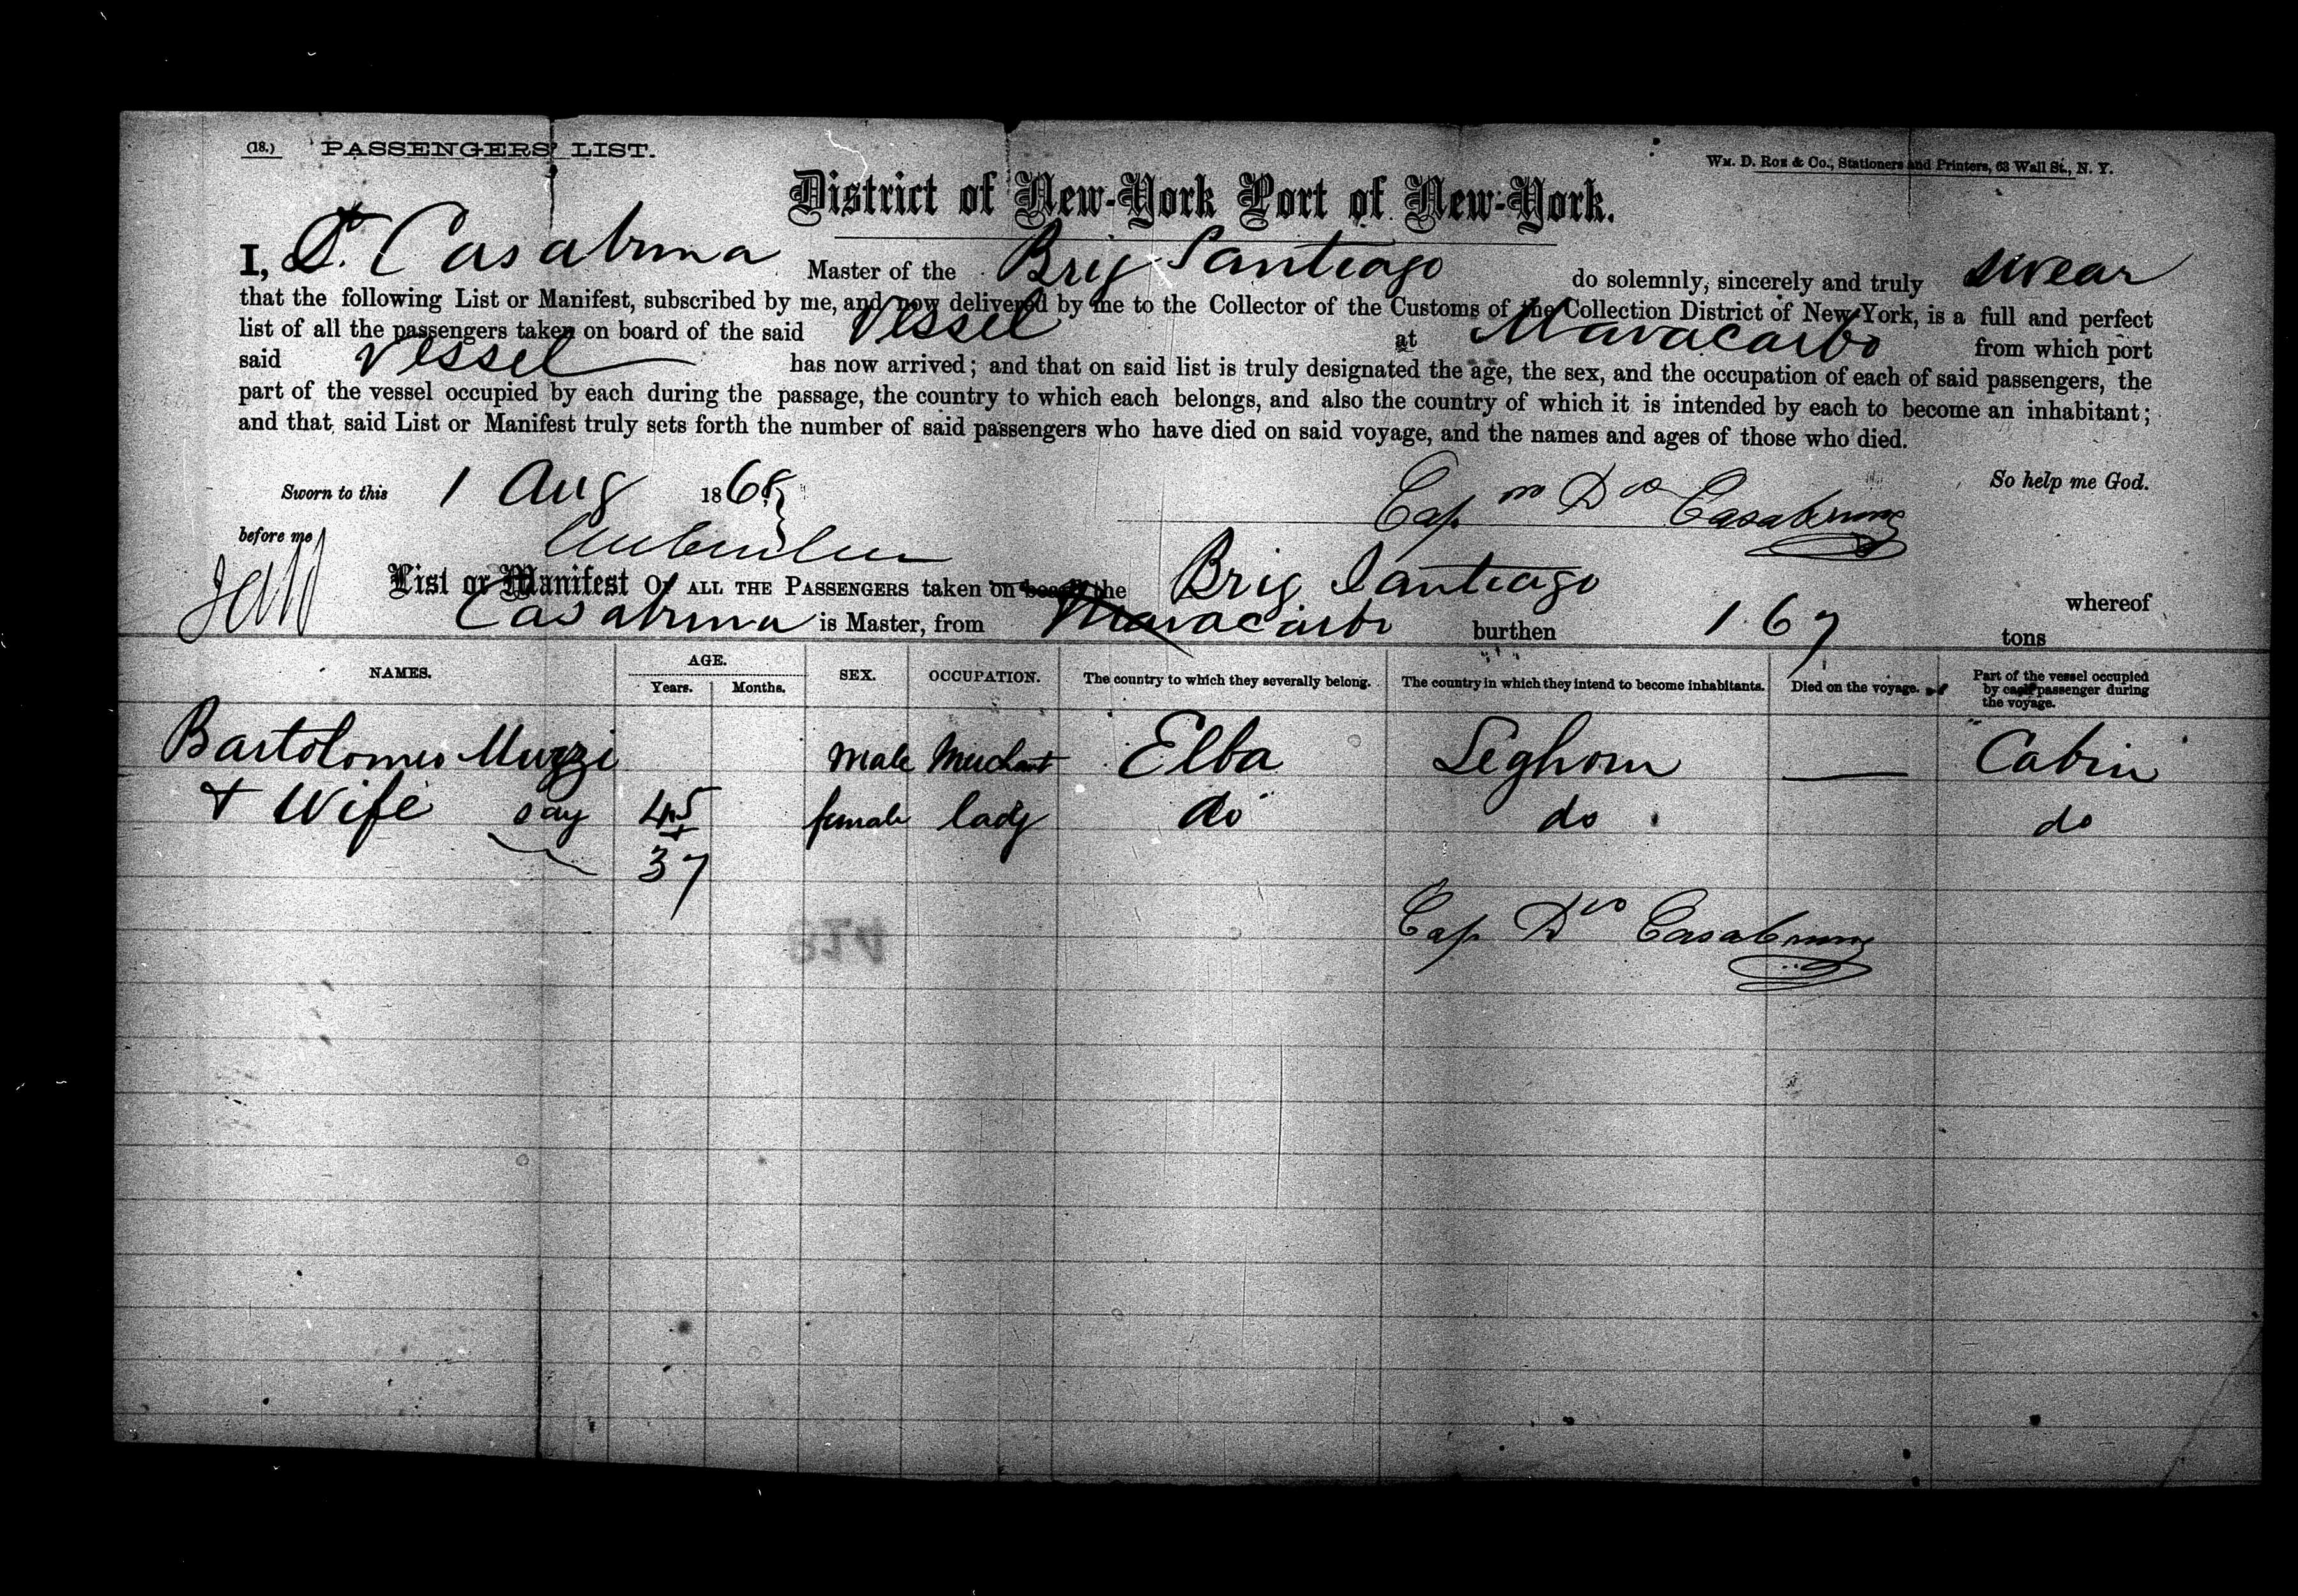 (18.) PASSENGERS' LIST.
Wm. D. Roe & Co., Stationers and Printers, 63 Wall St., N. Y.
District of New-York Port of New-York.
I, Casabruna Master of the Brig Santiago do solemnly, sincerely and truly swear
that the following List or Manifest, subscribed by me, and now delivered by me to the Collector of the Customs of the Collection District of New York, is a full and perfect
list of all the passengers taken on board of the said Vessel at Maracaibo from which port
said Vessel has now arrived; and that on said list is truly designated the age, the sex, and the occupation of each of said passengers, the
part of the vessel occupied by each during the passage, the country to which each belongs, and also the country of which it is intended by each to become an inhabitant;
and that said List or Manifest truly sets forth the number of said passengers who have died on said voyage, and the names and ages of those who died.
Sworn to this 1 Aug 1868 So help me God.
Cap Dco Casabruna
before me
List or Manifest OF ALL THE PASSENGERS taken on board the Brig Santiago whereof
Casabruna is Master, from Maracaibo burthen 167 tons
NAMES. AGE. Years. Months. SEX. OCCUPATION. The country to which they severally belong. The country in which they intend to become inhabitants. Died on the voyage. Part of the vessel occupied by each passenger during the voyage.
Bartolomeo Murzi male Merchant Elba Leghorn — Cabin
+ Wife say 45 female lady do do do
37
Cap Dco Casabruna